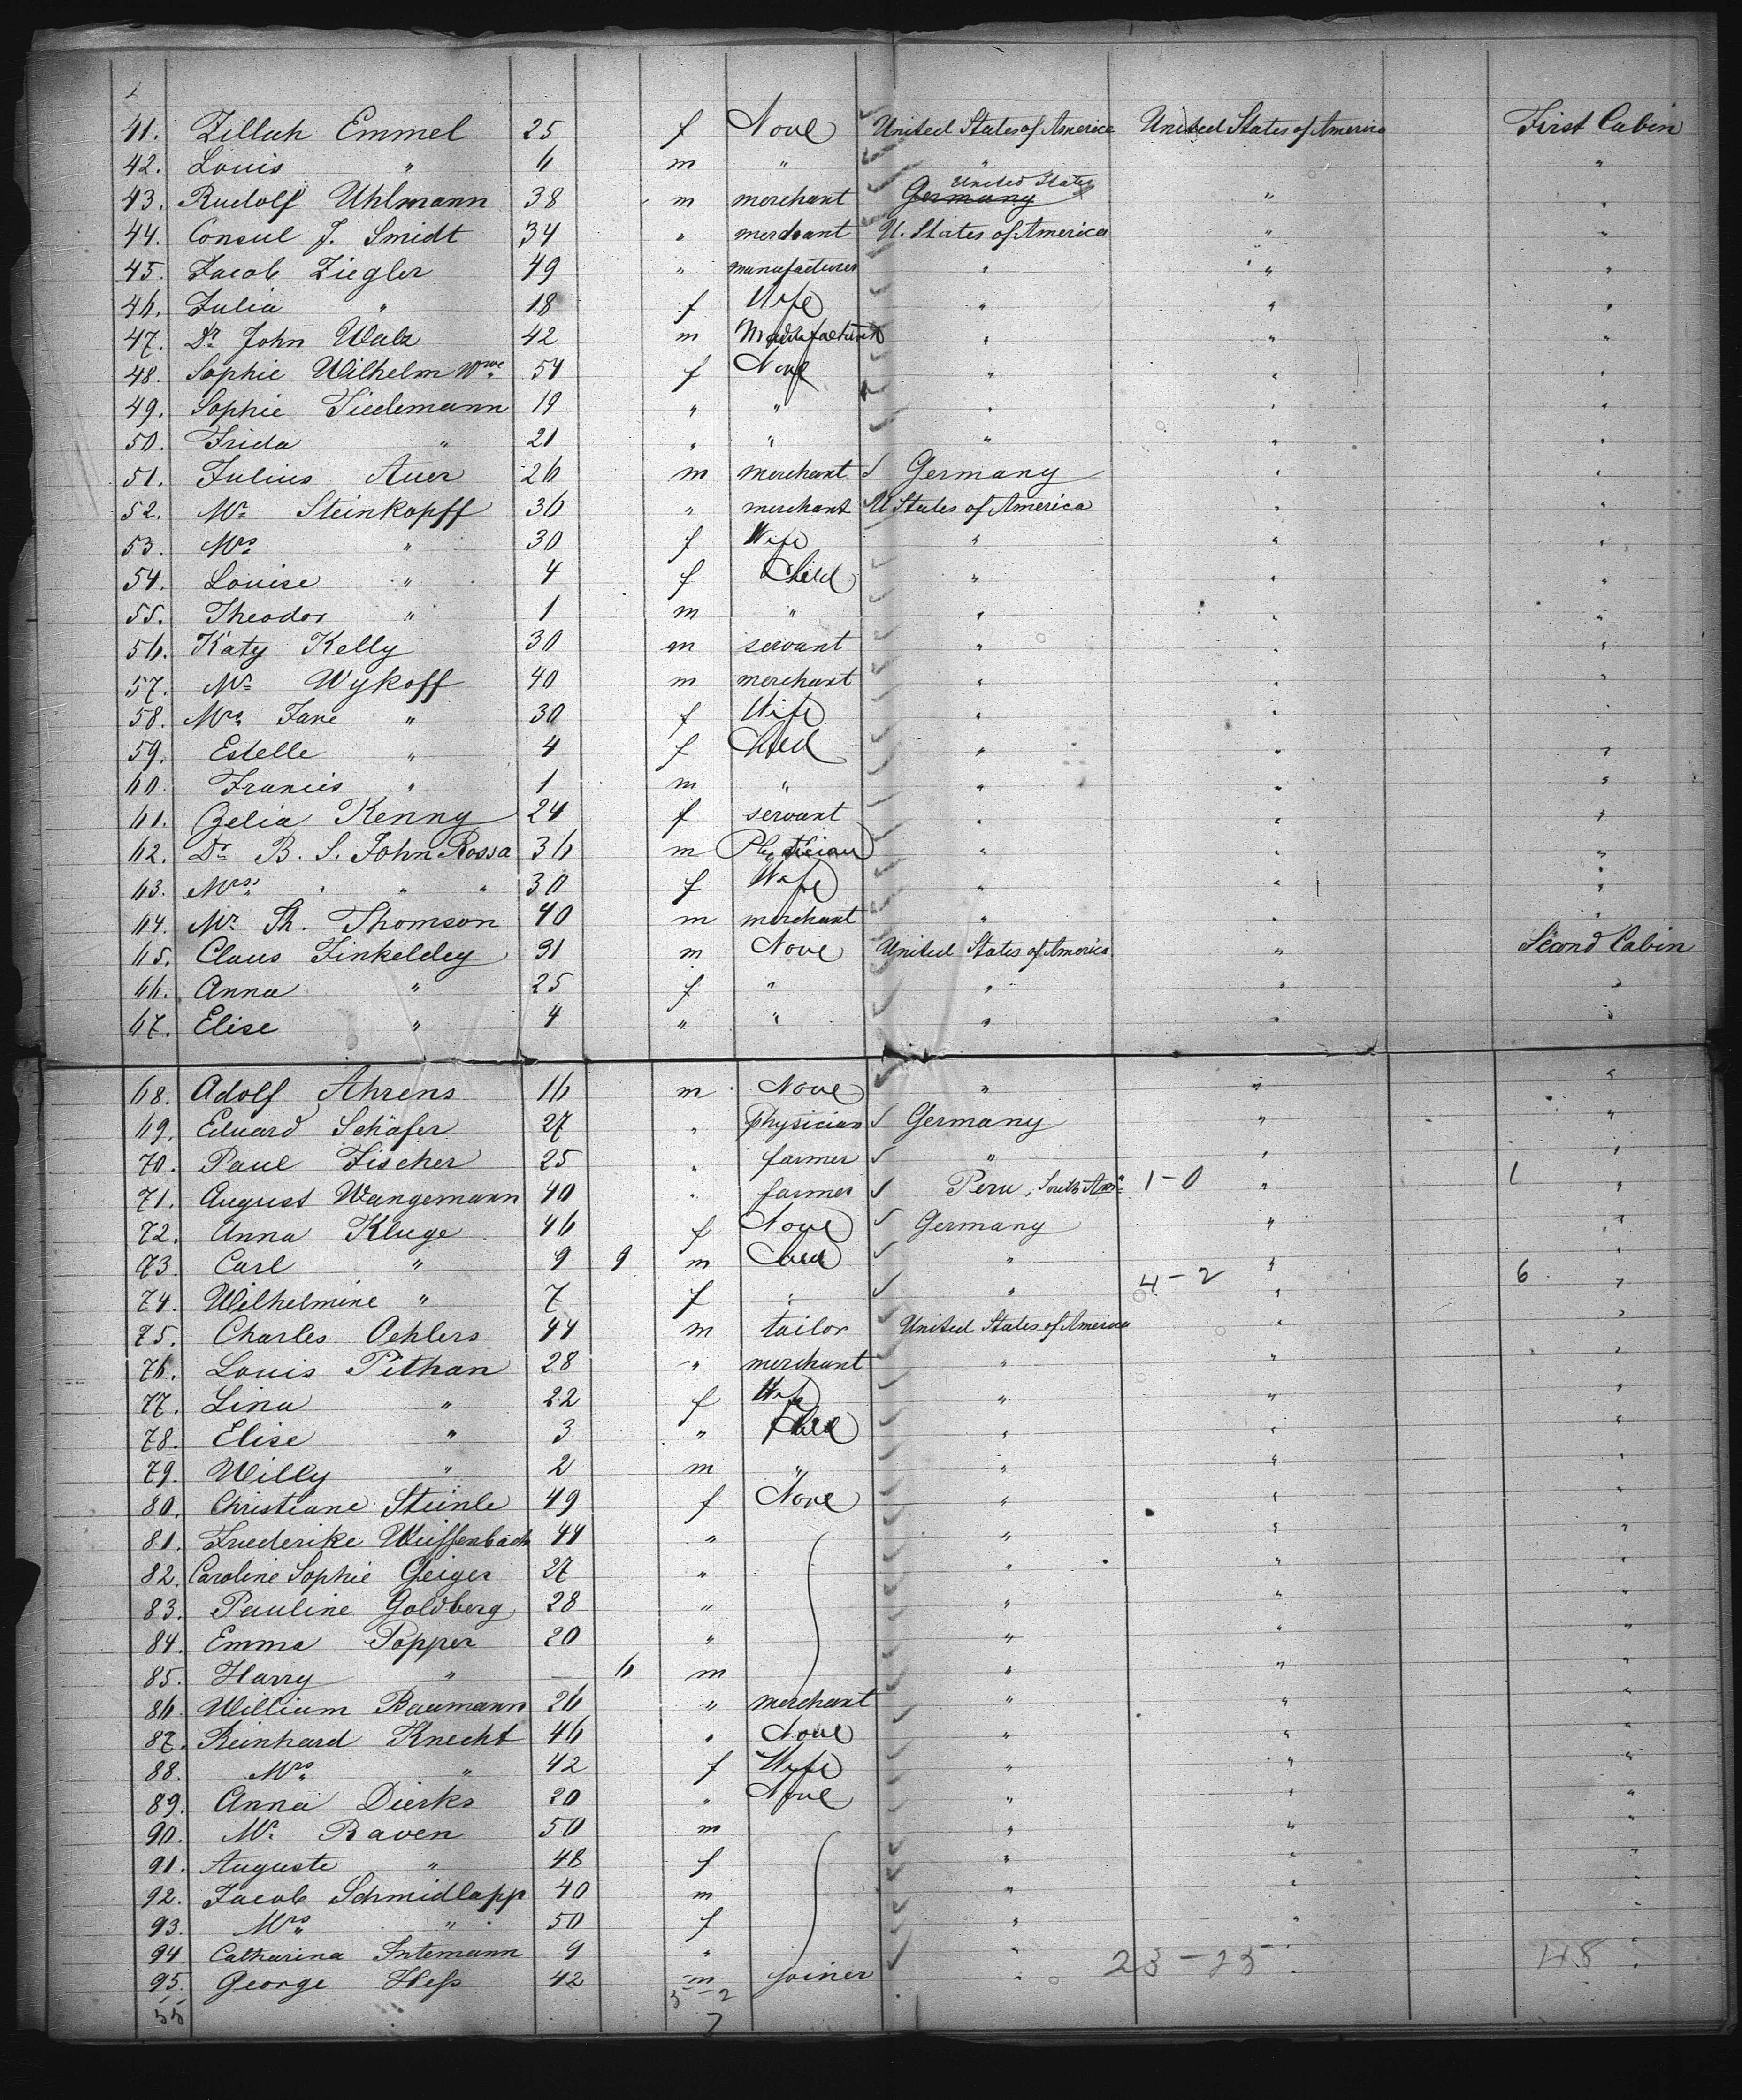 41. Zilluh Emmel 25 f None United States of America United States of America First Cabin
42. Louis " 6 m " " "
43. Rudolf Uhlmann 38 m merchant Germany United States " "
44. Consul J. Smidt 34 " merchant U. States of America " "
45. Jacob Ziegler 49 " manufacturer " " "
46. Julia " 18 f Wife " " "
47. Dr. John Walz 42 m " " "
48. Sophie Wilhelm Wwe. 54 f None " " "
49. Sophie Tiedemann 19 " " " " "
50. Frida " 21 " " " " "
51. Julius Auer 26 m merchant Germany " "
52. Mr. Steinkopff 36 " merchant U States of America " "
53. Mrs. " 30 f Wife " " "
54. Louise " 4 f Child " " "
55. Theodor " 1 m " " " "
56. Katy Kelly 30 m servant " " "
57. Mr. Wykoff 40 m merchant " " "
58. Mrs. Jane " 30 f Wife " " "
59. Estelle " 4 f Child " " "
60. Francis " 1 m " " " "
61. Zelia Kenny 24 f servant " " "
62. Dr. B. S. John Rossa 36 m Physician " " "
63. Mrs. " " " 30 f Wife " " "
64. Mr. Th. Thomson 40 m merchant " " "
65. Claus Finkeldey 31 m None United States of America " Second Cabin
66. Anna " 25 f " " " "
67. Elise " 4 " " " " "
68. Adolf Ahrens 16 m None " " "
69. Eduard Schäfer 27 " physician Germany " "
70. Paul Fischer 25 " farmer " " "
71. August Wangemann 40 " farmer Peru, South Am. 1-0 " 1 "
72. Anna Kluge 46 f None Germany " "
73. Carl " 9 9 m Child " " "
74. Wilhelmine " 7 f " " 4-2 " 6 "
75. Charles Oehlers 44 m tailor United States of America " "
76. Louis Pithan 28 " merchant " " "
77. Lina " 22 f Wife " " "
78. Elise " 3 " Child " " "
79. Willy " 2 m " " " "
80. Christiane Steinle 49 f None " " "
81. Friederike Weissenbach 44 " " " "
82. Caroline Sophie Geiger 27 " " " "
83. Pauline Goldberg 28 " " " "
84. Emma Popper 20 " " " "
85. Harry " — 6 m " " "
86. William Baumann 26 " merchant " " "
87. Reinhard Knecht 46 " None " " "
88. Mrs. " 42 f Wife " " "
89. Anna Dierks 20 " None " " "
90. Mr. Raven 50 m " " "
91. Auguste " 48 f " " "
92. Jacob Schmidlapp 40 m " " "
93. Mrs. " 50 f " " "
94. Catharina Intemann 9 " " " "
95. George Heß 42 m joiner " 23-25 " 48 "
55 5-2
7